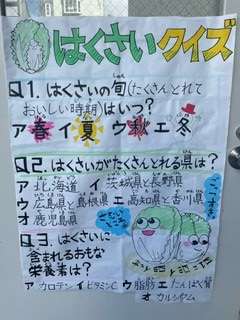 はくさいクイズ
Q1. はくさいの旬(たくさんとれて
おいしい時期)はいつ?
ア春 イ夏 ウ秋 エ冬
Q2. はくさいがたくさんとれる県は?
ア北海道 イ茨城県と長野県
ウ広島県と島根県 エ高知県と香川県
オ鹿児島県
Q3. はくさいに
含まれるおもな
栄養素は?
ア カロテン イ ビタミンC ウ 脂肪 エ たんぱく質
オ カルシウム